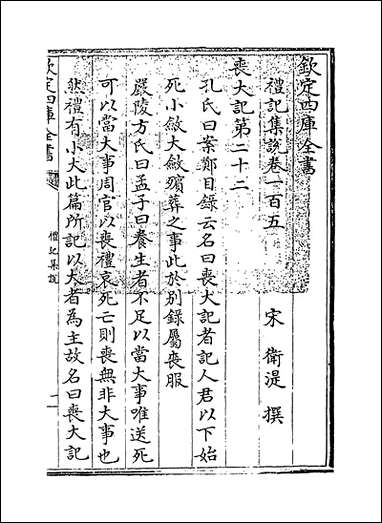 欽定四庫全書
禮記集說卷一百五
宋 衛湜 撰
喪大記第二十二
孔氏曰案鄭目錄云名曰喪大記者記人君以下始
死小斂大斂殯葬之事此於別錄屬喪服
嚴陵方氏曰孟子曰養生者不足以當大事唯送死
可以當大事周官以喪禮哀死亡則喪無非大事也
然禮有小大此篇所記以大者為主故名曰喪大記
欽定四庫全書
禮記集說